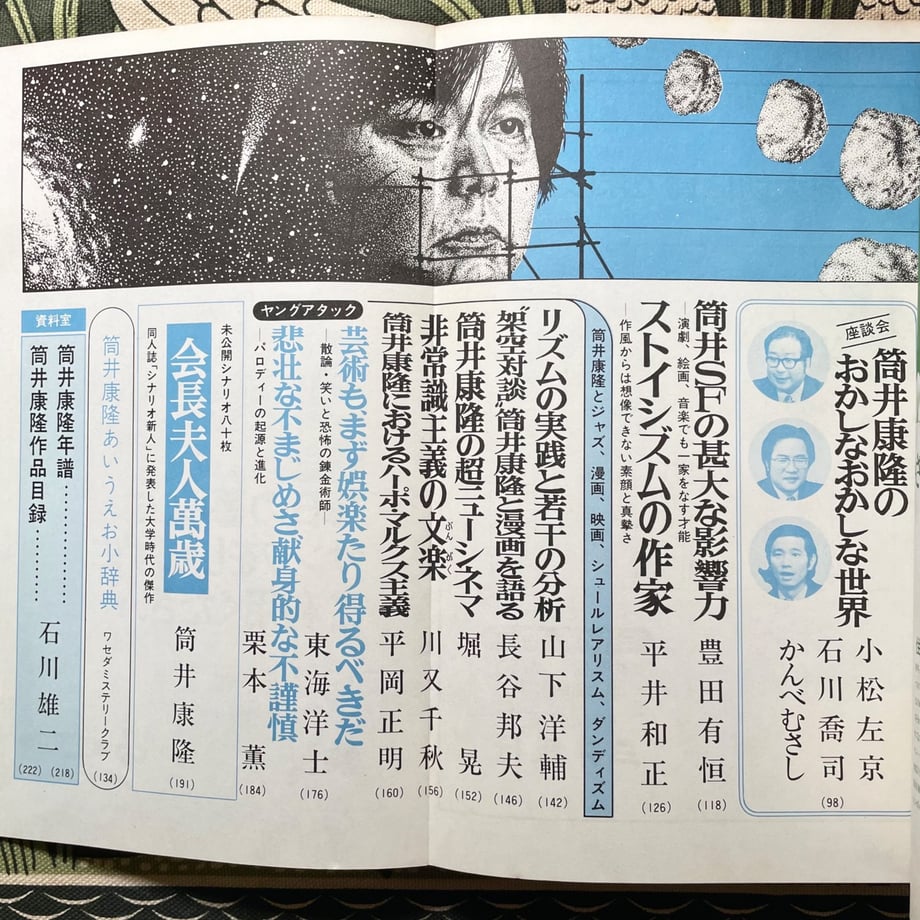 座談会
筒井康隆の
おかしなおかしな世界
小松左京
石川喬司
かんべむさし
(98)
筒井SFの甚大な影響力
―演劇、絵画、音楽でも一家をなす才能
豊田有恒
(118)
ストイシズムの作家
―作風からは想像できない素顔と真摯さ
平井和正
(126)
筒井康隆とジャズ、漫画、映画、シュールレアリスム、ダンディズム
リズムの実践と若干の分析
山下洋輔
(142)
"架空対談"筒井康隆と漫画を語る
長谷邦夫
(146)
筒井康隆の超ニューシネマ
堀晃
(152)
非常識主義の文楽
ぶんがく
川又千秋
(156)
筒井康隆におけるハーポ・マルクス主義
平岡正明
(160)
ヤングアタック
芸術もまず娯楽たり得るべきだ
―散論・笑いと恐怖の錬金術師―
東海洋士
(176)
悲壮な不まじめさ献身的な不謹慎
―パロディーの起源と進化
栗本薫
(184)
未公開シナリオ八十枚
会長夫人萬歳
同人誌「シナリオ新人」に発表した大学時代の傑作
筒井康隆
(191)
筒井康隆あいうえお小辞典
ワセダミステリークラブ
(134)
資料室
筒井康隆年譜…………
筒井康隆作品目録…………
石川雄二
(218)
(222)